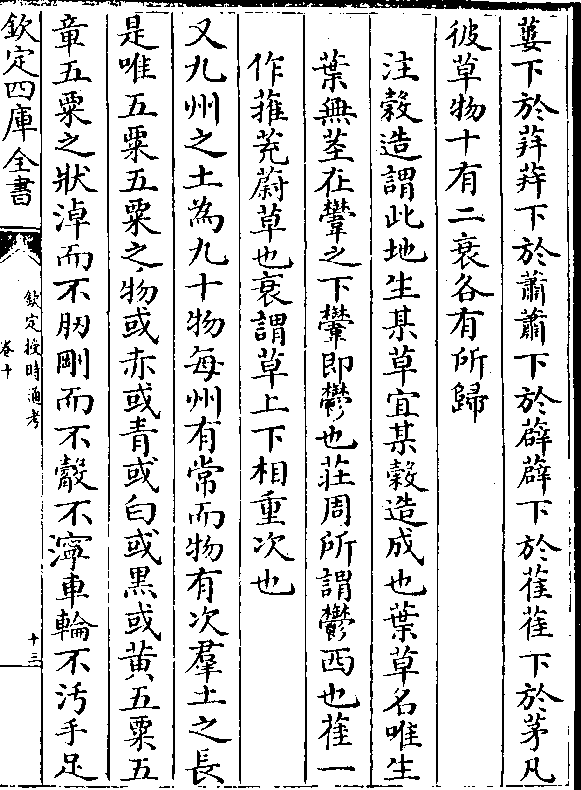 蔞下於荓荓下於蕭蕭下於薜薜下於萑萑下於茅凡
彼草物十有二衰各有所歸
注榖造謂此地生某草宜某榖造成也葉草名唯生
葉無莖在虆之下虆即鬱也莊周所謂鬱西也萑一
作蓷茺蔚草也衰謂草上下相重次也
又九州之土為九十物每州有常而物有次羣土之長
是唯五粟五粟之物或赤或青或白或黑或黃五粟五
章五粟之狀淖而不肕剛而不觳不濘車輪不汚手足
欽定四庫全書
欽定授時通考
卷十
十三